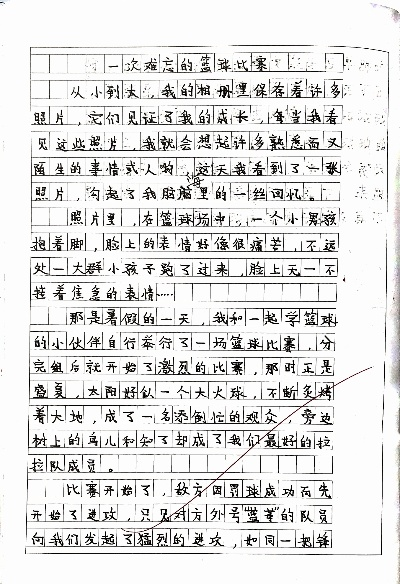 一次难忘的篮球比赛
从小到大，我的相册里保存着许多
照片，它们见证了我的成长，每当我看
见这些照片，我就会想起许多熟悉而又
陌生的事情或人物。这天我看到了一张
照片，勾起了我脑海里的一丝回忆。
照片里，在篮球场中，一个小男孩
抱着脚，脸上的表情好像很痛苦，不远
处一大群小孩子跑了过来，脸上无一不
挂着焦急的表情……
那是暑假的一天，我和一起学篮球
的小伙伴自行举行了一场篮球比赛，分
完组后就开始了激烈的比赛，那时正是
盛夏，太阳好似一个大火球，不断炙烤
着大地，成了一名添倒忙的观众，旁边
树上的鸟儿和知了却成了我们最好的拉
拉队成员。
比赛开始了，敌方因罚球成功而先
开始了进攻，只见对方外号"蓝董"的队员
向我们发起了猛烈的进攻，如同一把锋